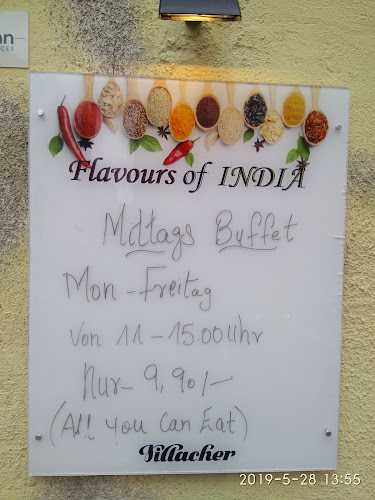 an
CES
Flavours of INDIA
Mittags Buffet
Mon-Freitag
Von 11-15.00Uhr
Nur- 9,90/-
(All you Can Eat)
Villacher
2019-5-28 13:55